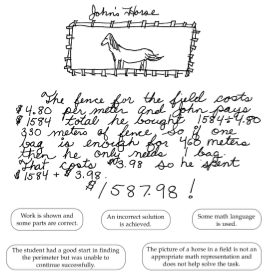 John's Horse
The fence for the field costs
$4.80 per meter and John pays
$1584 total he bought 1584÷4.80
330 meters of fence. So if one
bag is enough for 460 meters
then he only needs 1 bag.
That costs $3.98 so he spent
$1584 + $3.98.
$1587.98!
Work is shown and
some parts are correct.
An incorrect solution
is achieved.
Some math language
is used.
The student had a good start in finding
the perimeter but was unable to
continue successfully.
The picture of a horse in a field is not an
appropriate math representation and
does not help solve the task.